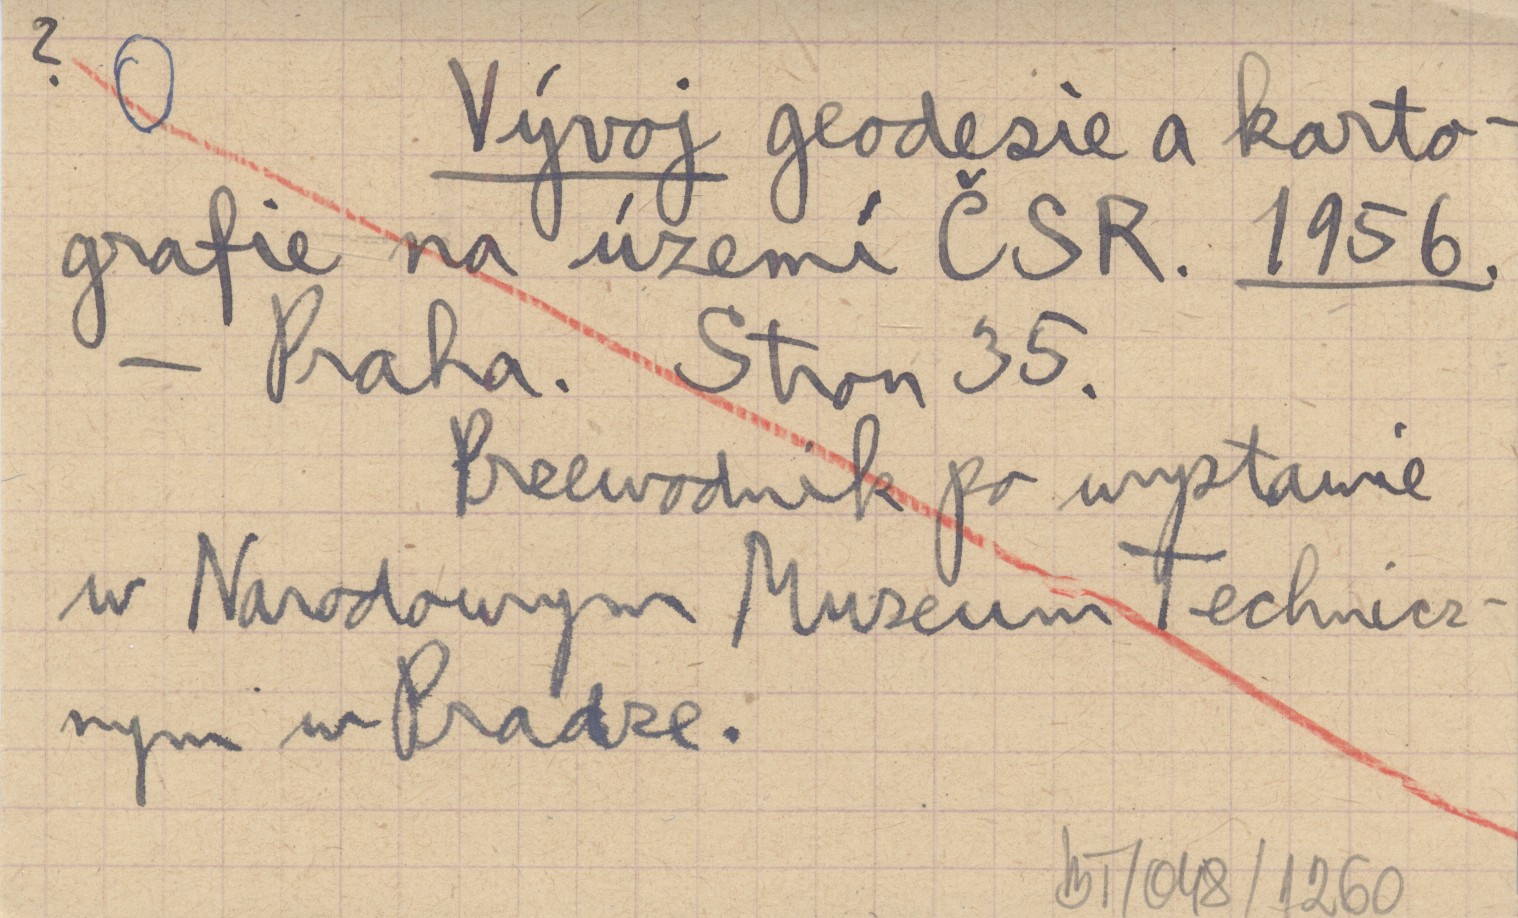 ? O
Vývoj geodesie a karto-
grafie na území ČSR. 1956.
- Praha. Stron 35.
Przewodnik po wystawie
w Narodowym Muzeum Technicz-
nym w Pradze.
BT/048/1260